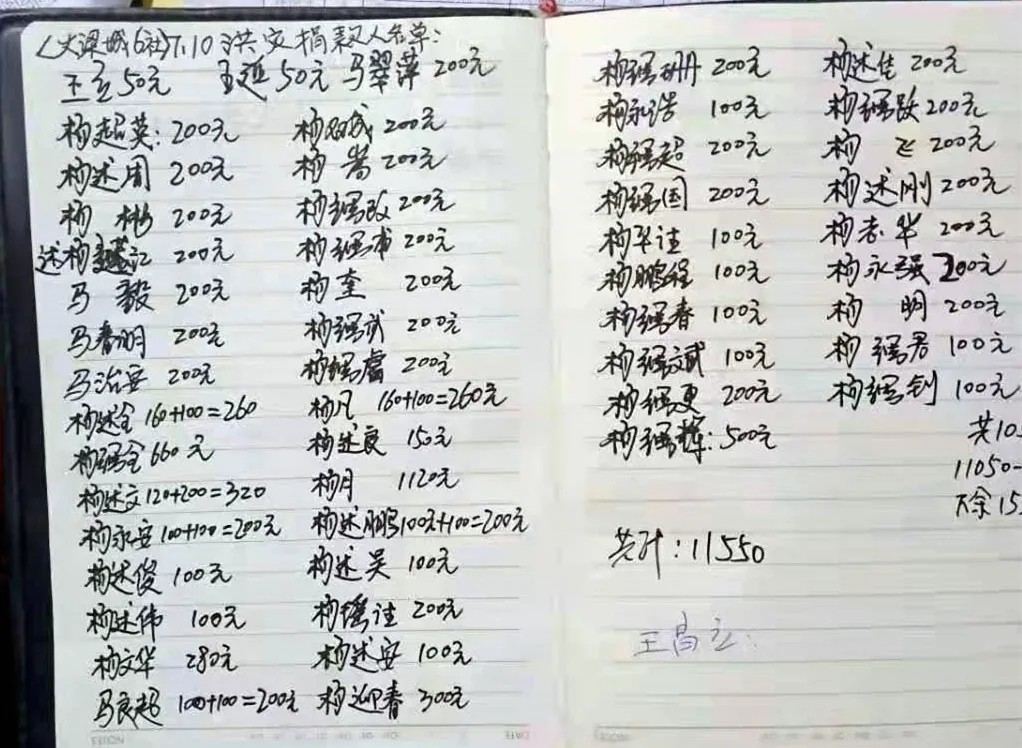 (大梁城6社)7.10洪灾捐款人名单:
王立50元 王延50元 马翠萍200元
杨超英:200元 杨成200元
杨述周 200元 杨 200元
杨彬 200元 杨强 200元
述杨江 200元 杨强 200元
马毅 200元 杨奎 200元
马春明 200元 杨强武 200元
马治安 200元 杨强 200元
杨述全160+100=260 杨凡 160+100=260元
杨强全660元 杨述良 150元
杨述文120+200=320 杨月 1120元
杨永安100+100=200元 杨述鹏100元+100=200元
杨述俊 100元 杨述吴 100元
杨述伟 100元 杨佳 200元
杨文华 280元 杨述安 100元
马良超 100+100=200元 杨迎春 300元
杨强 200元 杨述佳 200元
杨永浩 100元 杨强跃 200元
杨强超 200元 杨飞 200元
杨强国 200元 杨述刚 200元
杨华佳 100元 杨志华 200元
杨鹏程 100元 杨永强 200元
杨强春 100元 杨明 200元
杨强斌 100元 杨强君 100元
杨强更 200元 杨强钊 100元
杨强辉:500元 共10
11050-
下余15
共计:11550
王昌立: